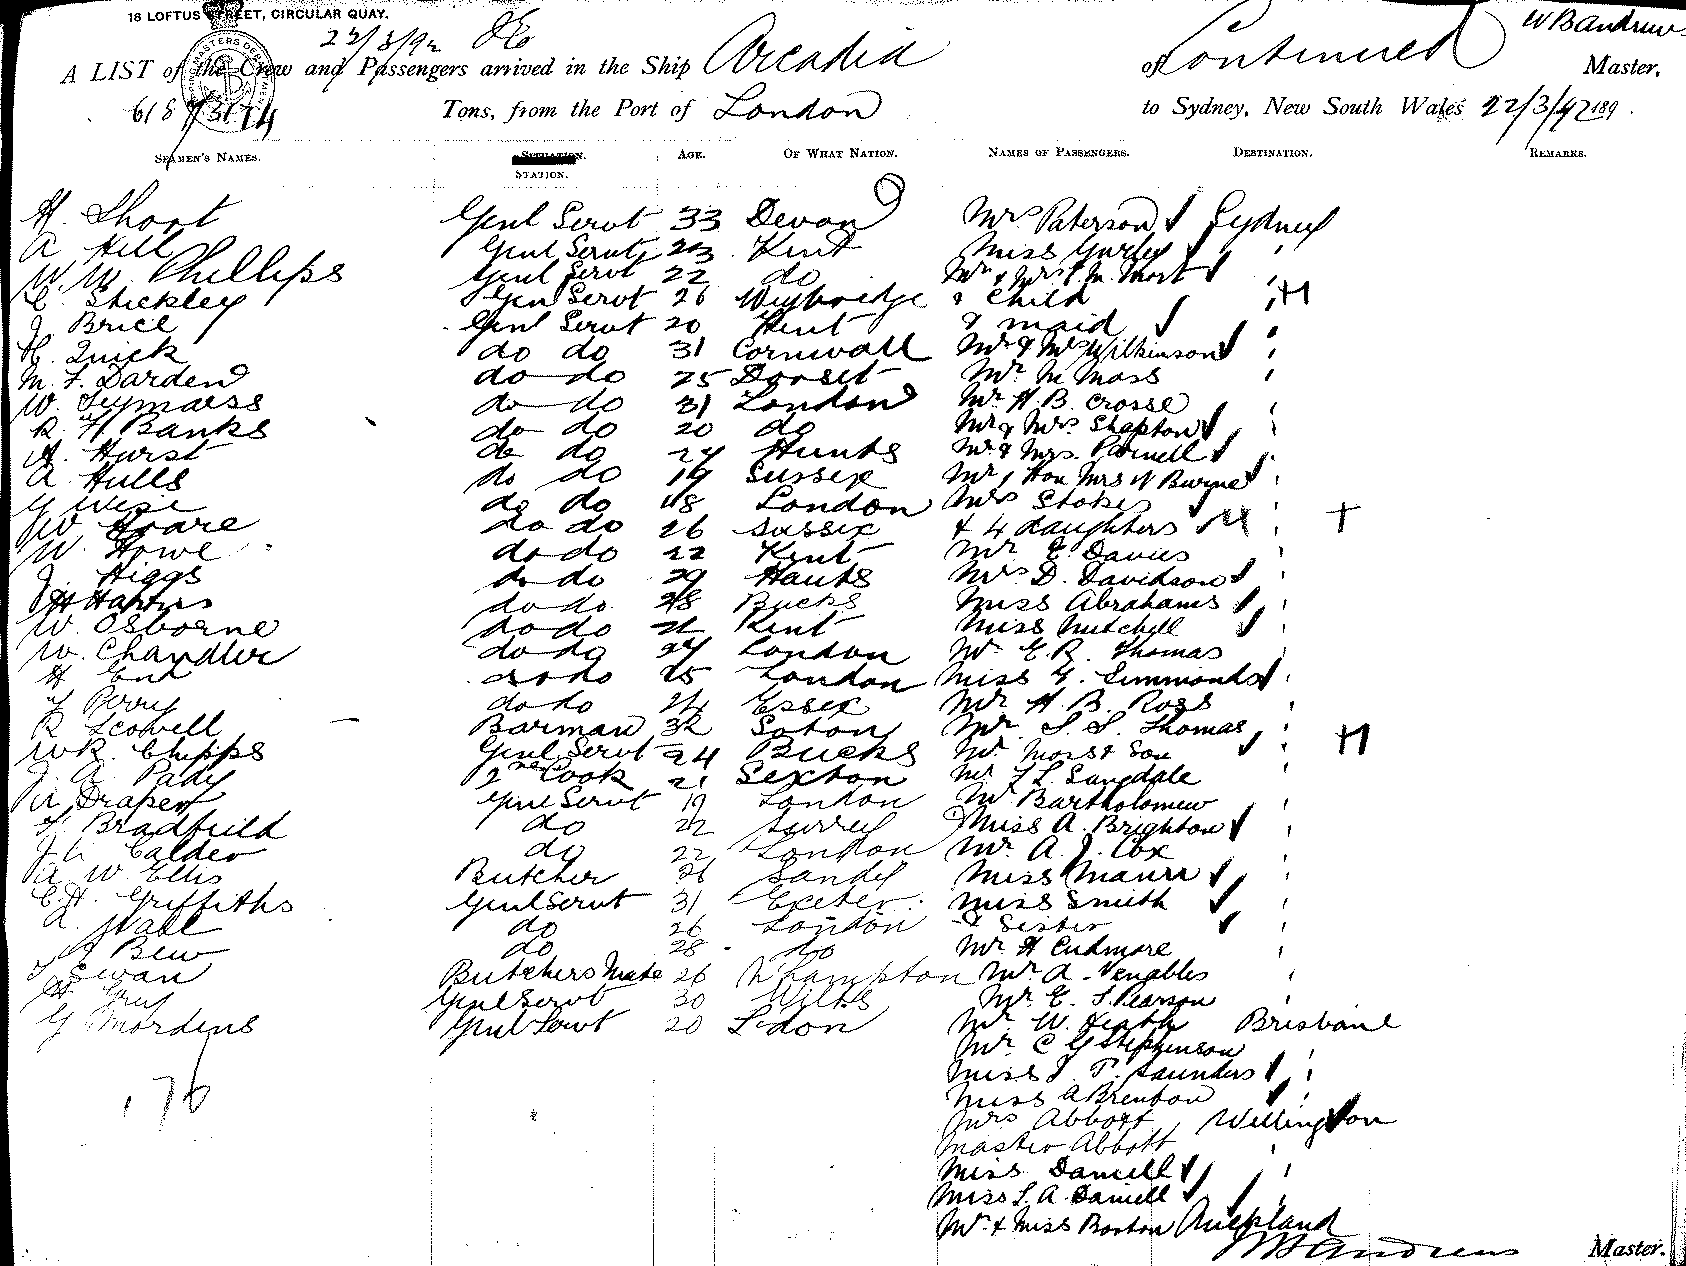 18 LOFTUS STREET, CIRCULAR QUAY.
22/3/92
W B Andrews
A LIST of the Crew and Passengers arrived in the Ship Arcadia of Continued Master,
Tons, from the Port of London to Sydney, New South Wales 22/3/92 189 .
SEAMEN'S NAMES. STATION. AGE. OF WHAT NATION. NAMES OF PASSENGERS. DESTINATION. REMARKS.
H. Short Genl Servt 33 Devon Mrs Paterson Sydney
A Hill Genl Servt 23 Kent Miss Gurley
W. W. Phillips Genl Servt 22 do Mr & Mrs Mort
C. Stickley Genl Servt 26 Weybridge & Child
J Brice Genl Servt 20 Kent & maid
H. Quick do do 31 Cornwall Mr & Mrs Wilkinson
M. F. Darden do do 25 Dorset Mr. M Moss
W. do do 31 London Mr. H. B. Crosse
R. H Banks do do 20 do Mr & Mrs. Shepton
H. Hurst do do 24 Hunts Mr & Mrs. Purnell
A Hulls do do 19 Sussex Mr , Hon Mrs W Burgne
G Wise do do 18 London Mrs Stokes
W Hoare do do 26 Sussex & 4 daughters
W. Howe do do 22 Kent Mr E. Davies
J. Higgs do do 29 Hants Mrs D. Davidson
do do 28 Bucks Miss Abrahams
W. Osborne do do 21 Kent Miss Mitchell
W. Chandler do do 24 London Mr. E. R. Thomas
H do do 25 London Miss G. Simmonds
Perry do do 24 Essex Mr H. B. Ross
R Scovell Barman 32 Soton Mr. S. S. Thomas
WR. Chipps Genl Servt 24 Bucks Mr. Mois & Son
J. A. Pady 2nd Cook 21 Sexton Mr F L. Langdale
W Draper Genl Servt 19 London Mr Bartholomew
Bradfield do 22 Surrey Miss A. Brighton
Calder do 22 London Mr. A. J. Cox
A W. Ellis Butcher 26 Sandy Miss Maurr
C. H. Griffiths Genl Servt 31 Exeter Miss Smith
A. Wall do 26 London & Sister
Bew do 28 do Mr. H Cudmore
Swan Butchers Mate 26 N'hampton Mr. A. Venables
H. Grey Genl Servt 30 Wilts Mr. E. S. Pearson
G Mordens Genl Servt 20 London Mr. W. Heath Brisbane
Mr. C G Stephenson
Miss J. P. Saunders
176 Miss A Brenton
Mrs Abbott Wellington
Master Abbott
Miss Daniell
Miss L. A. Daniell
Mr. & Miss Boston Auckland
W B Andrews Master.